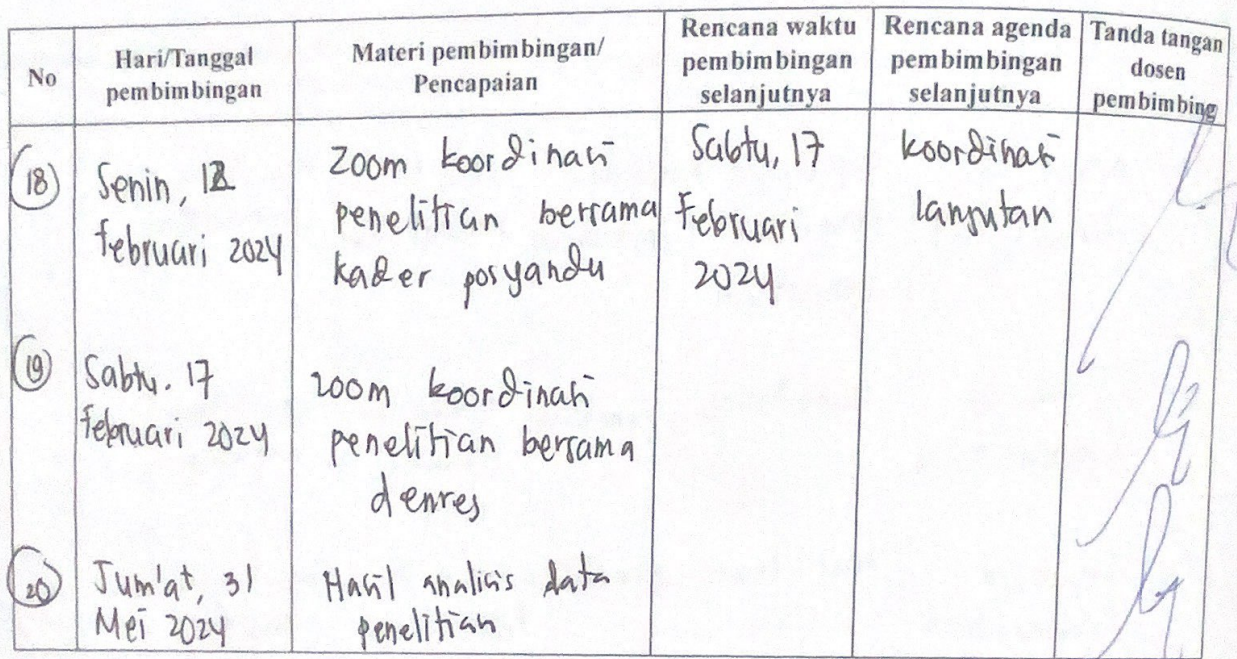 No
Hari/Tanggal
pembimbingan
Materi pembimbingan/
Pencapaian
Rencana waktu
pembimbingan
selanjutnya
Rencana agenda
pembimbingan
selanjutnya
Tanda tangan
dosen
pembimbing
18
Senin, 12
februari 2024
Zoom koordinasi
penelitian bersama
kader posyandu
Sabtu, 17
Februari
2024
koordinasi
lanjutan
19
Sabtu. 17
februari 2024
zoom koordinasi
penelitian bersama
20
Jum'at, 31
Mei 2024
Hasil analisis data
penelitian